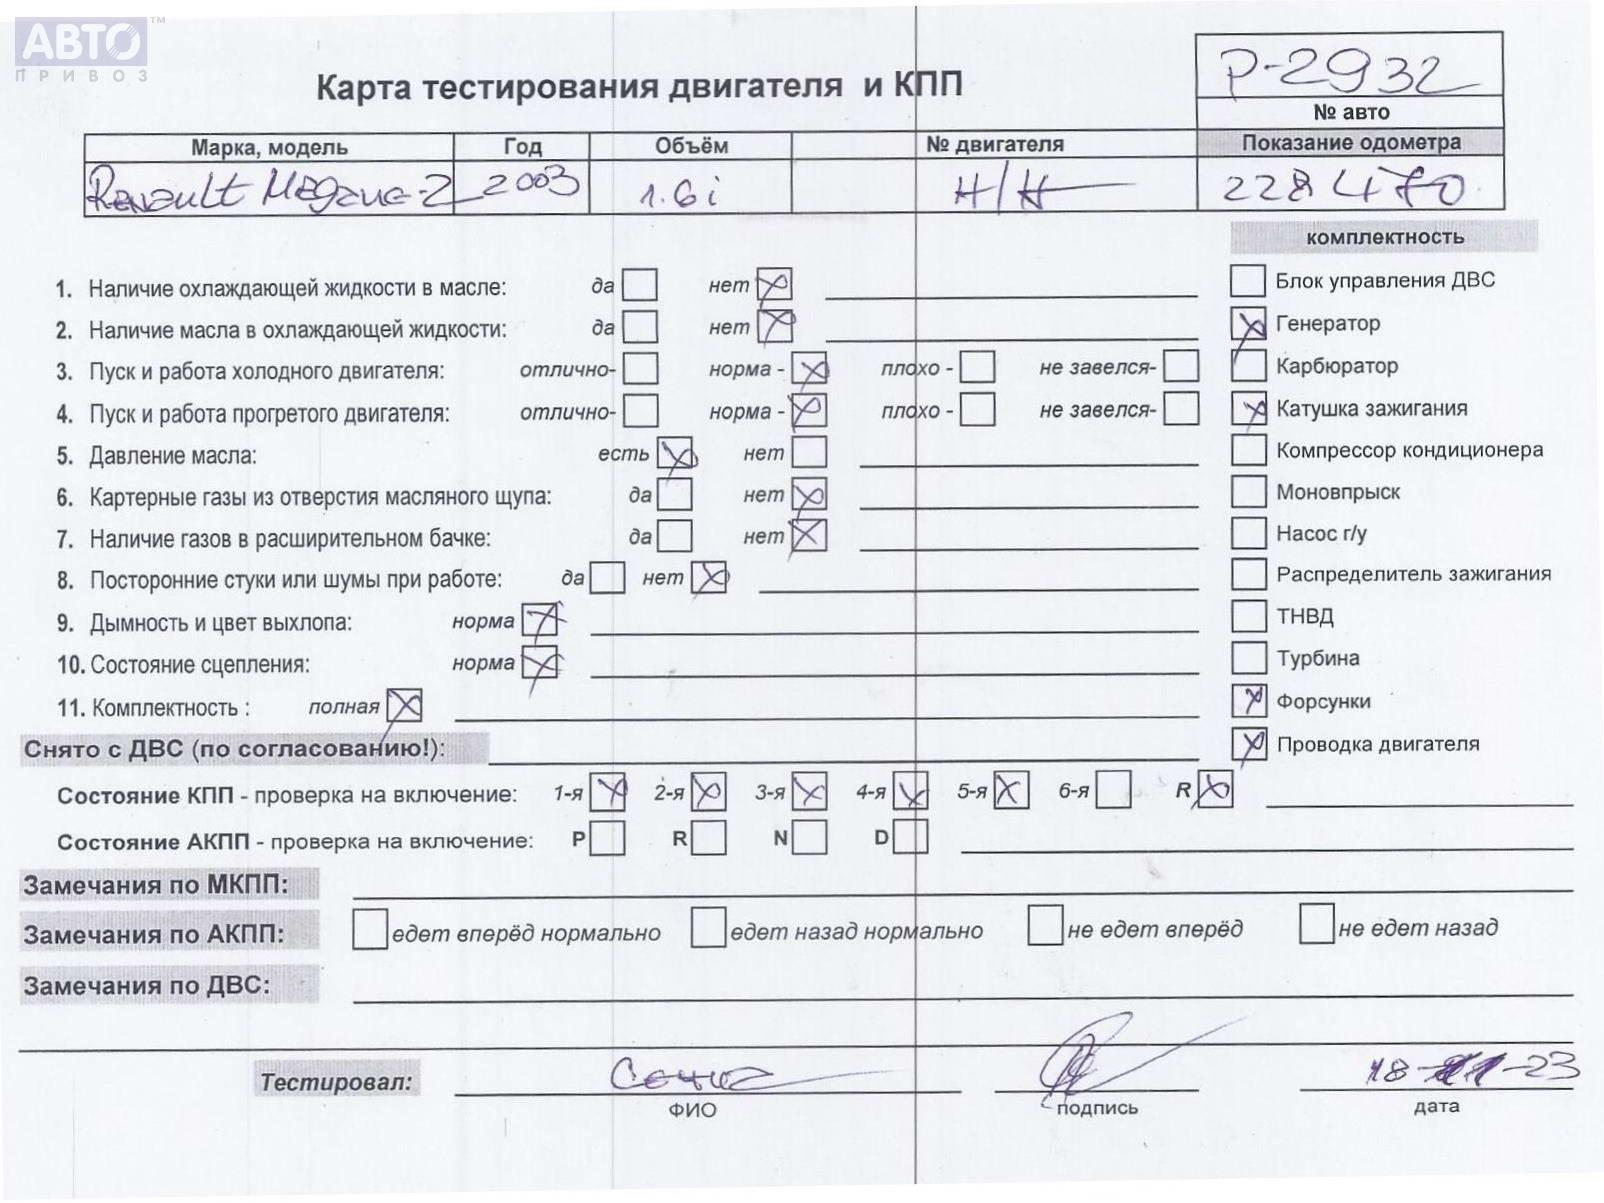 АВТО™
ПРИВОЗ
Карта тестирования двигателя и КПП
P-2932
№ авто
Марка, модель Год Объём № двигателя Показание одометра
Renault Megane-2 2003 1.6i Н/Н 228470
комплектность
1. Наличие охлаждающей жидкости в масле: да нет
Блок управления ДВС
2. Наличие масла в охлаждающей жидкости: да нет
Генератор
3. Пуск и работа холодного двигателя: отлично- норма - плохо - не завелся-
Карбюратор
4. Пуск и работа прогретого двигателя: отлично- норма - плохо - не завелся-
Катушка зажигания
5. Давление масла: есть нет
Компрессор кондиционера
6. Картерные газы из отверстия масляного щупа: да нет
Моновпрыск
7. Наличие газов в расширительном бачке: да нет
Насос г/у
8. Посторонние стуки или шумы при работе: да нет
Распределитель зажигания
9. Дымность и цвет выхлопа: норма
ТНВД
10. Состояние сцепления: норма
Турбина
11. Комплектность : полная
Форсунки
Снято с ДВС (по согласованию!):
Проводка двигателя
Состояние КПП - проверка на включение: 1-я 2-я 3-я 4-я 5-я 6-я R
Состояние АКПП - проверка на включение: P R N D
Замечания по МКПП:
Замечания по АКПП: едет вперёд нормально едет назад нормально не едет вперёд не едет назад
Замечания по ДВС:
Тестировал: 18- -23
ФИО подпись дата